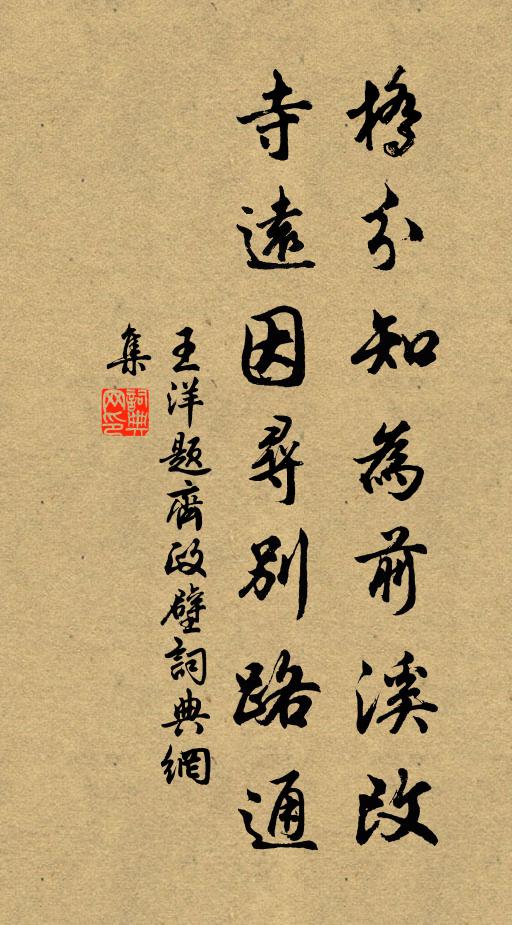 橋分知為前溪改
寺遠因尋別路通
王洋題齊政壁詞典網
集
詞典網印